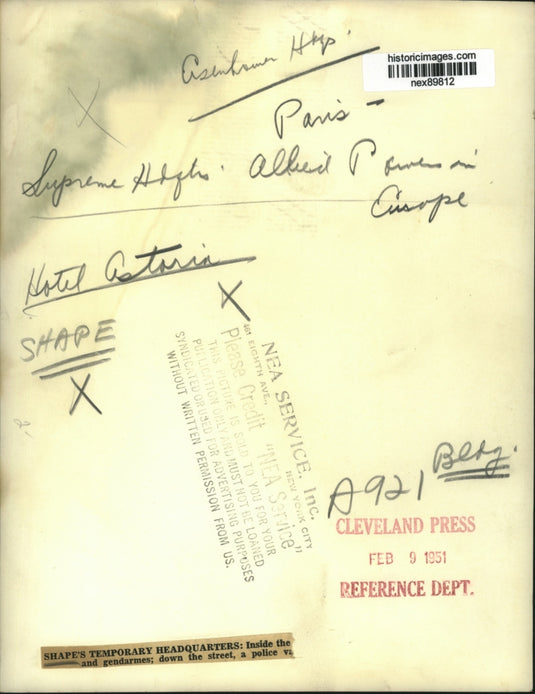 historicimages.com
nex89812
Eisenhower Hdqs.
Paris -
Supreme Hdqtrs. Allied Powers in
Europe
Hotel Astoria
X
SHAPE
X
NEA SERVICE, Inc.
461 EIGHTH AVE., NEW YORK CITY
Please Credit "NEA Service"
THIS PICTURE IS SOLD TO YOU FOR YOUR
PUBLICATION ONLY AND MUST NOT BE LOANED
SYNDICATED OR USED FOR ADVERTISING PURPOSES
WITHOUT WRITTEN PERMISSION FROM US.
A921 Bldg.
CLEVELAND PRESS
FEB 9 1951
REFERENCE DEPT.
SHAPE'S TEMPORARY HEADQUARTERS: Inside the
and gendarmes; down the street, a police